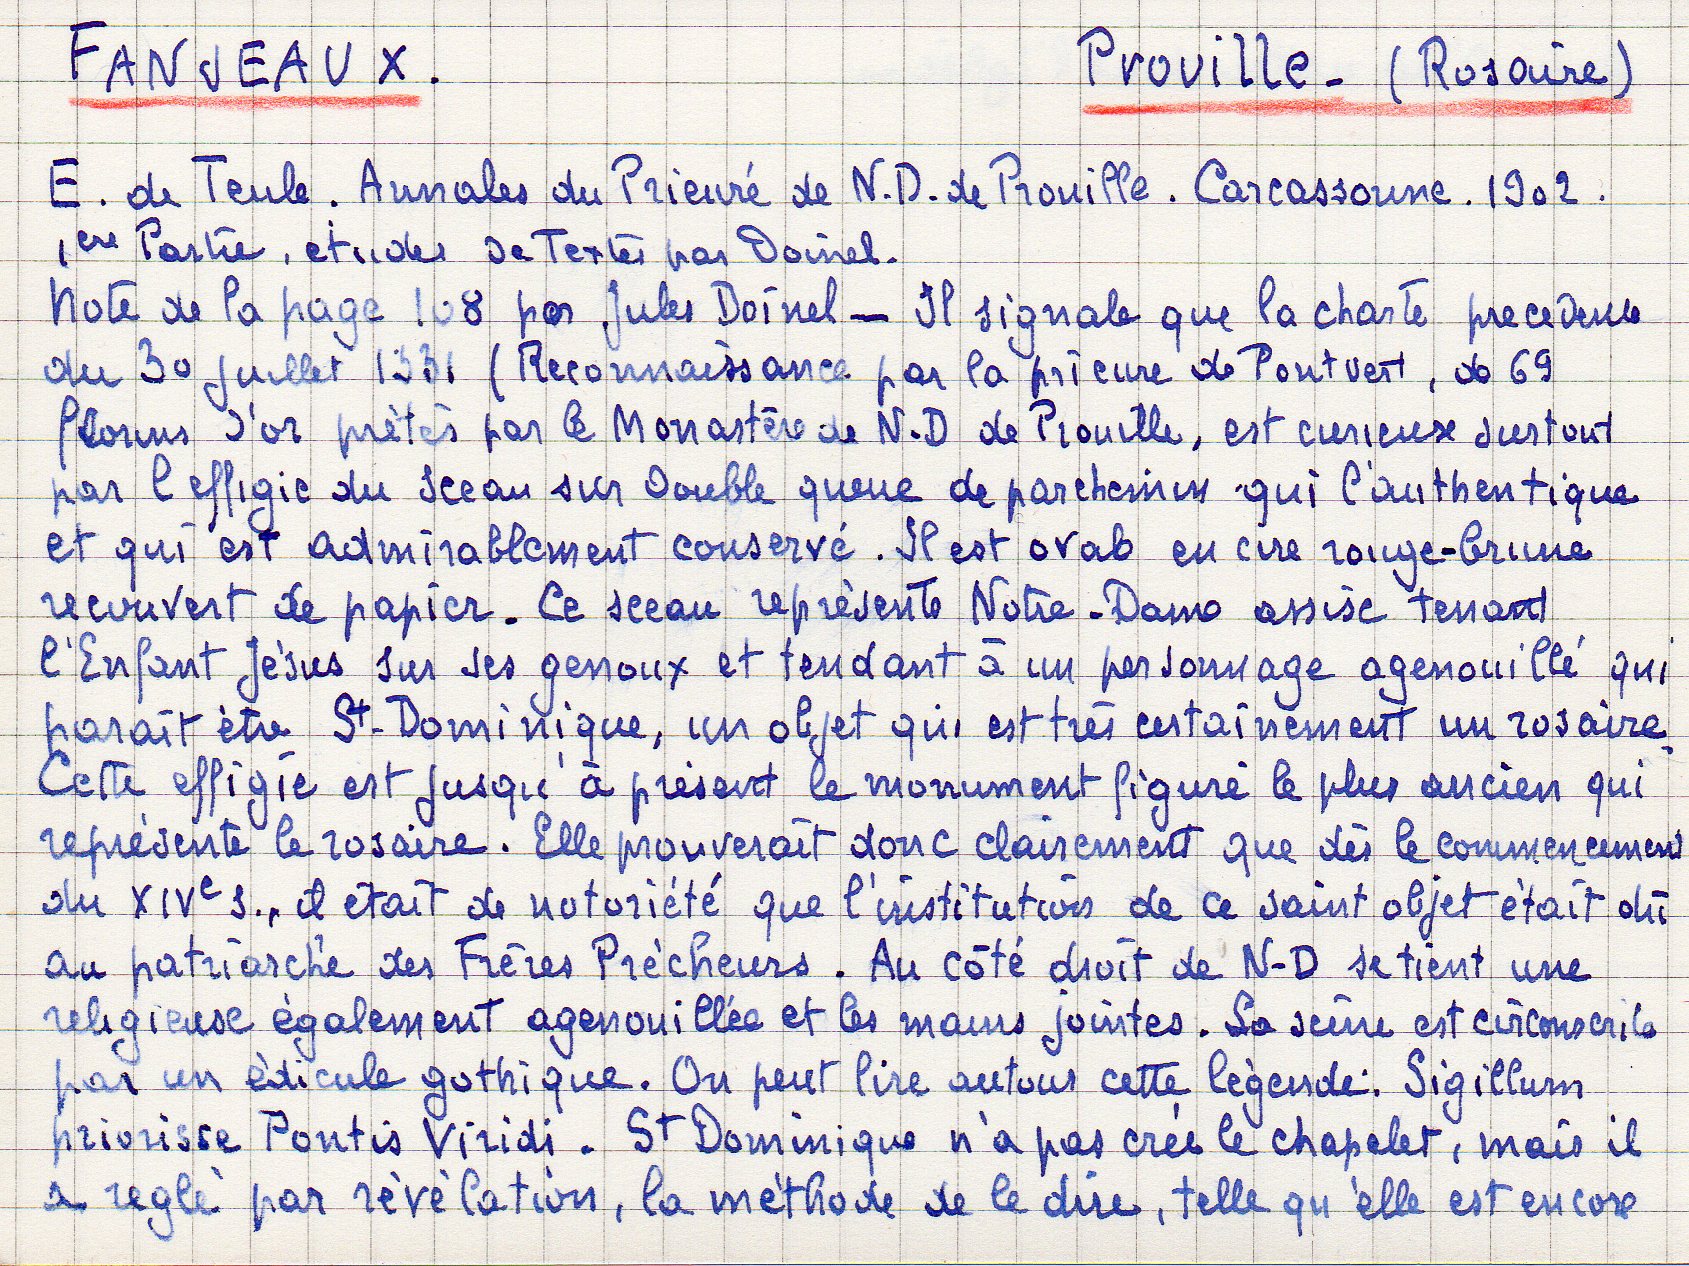 FANJEAUX. Prouille - (Rosaire)
E. de Teule. Annales du Prieuré de N.D. de Prouille. Carcassonne. 1902.
1ere Partie, études de Textes par Doinel.
Note de la page 108 par Jules Doinel — Il signale que la charte precedente
du 30 juillet 1331 (Reconnaissance par la prieure de Pontvert, de 69
florins d'or prêtés par le Monastère de N.D de Prouille, est curieuse surtout
par l'effigie du sceau sur double queue de parchemin qui l'authentique
et qui est admirablement conservé. Il est ovale en cire rouge-brune
recouvert de papier. Ce sceau représente Notre-Dame assise tenant
l'Enfant Jésus sur ses genoux et tendant à un personnage agenouillé qui
parait être St-Dominique, un objet qui est très certainement un rosaire.
Cette effigie est jusqu'à présent le monument figuré le plus ancien qui
représente le rosaire. Elle prouverait donc clairement que dès le commencement
du XIVe s., il était de notoriété que l'institution de ce saint objet était dû
au patriarche des Frères Prêcheurs. Au côté droit de N-D se tient une
religieuse également agenouillée et les mains jointes. La scène est circonscrite
par un édicule gothique. On peut lire autour cette légende: Sigillum
priorisse Pontis Viridi. St Dominique n'a pas créé le chapelet, mais il
a reglé par révélation, la méthode de le dire, telle qu'elle est encore